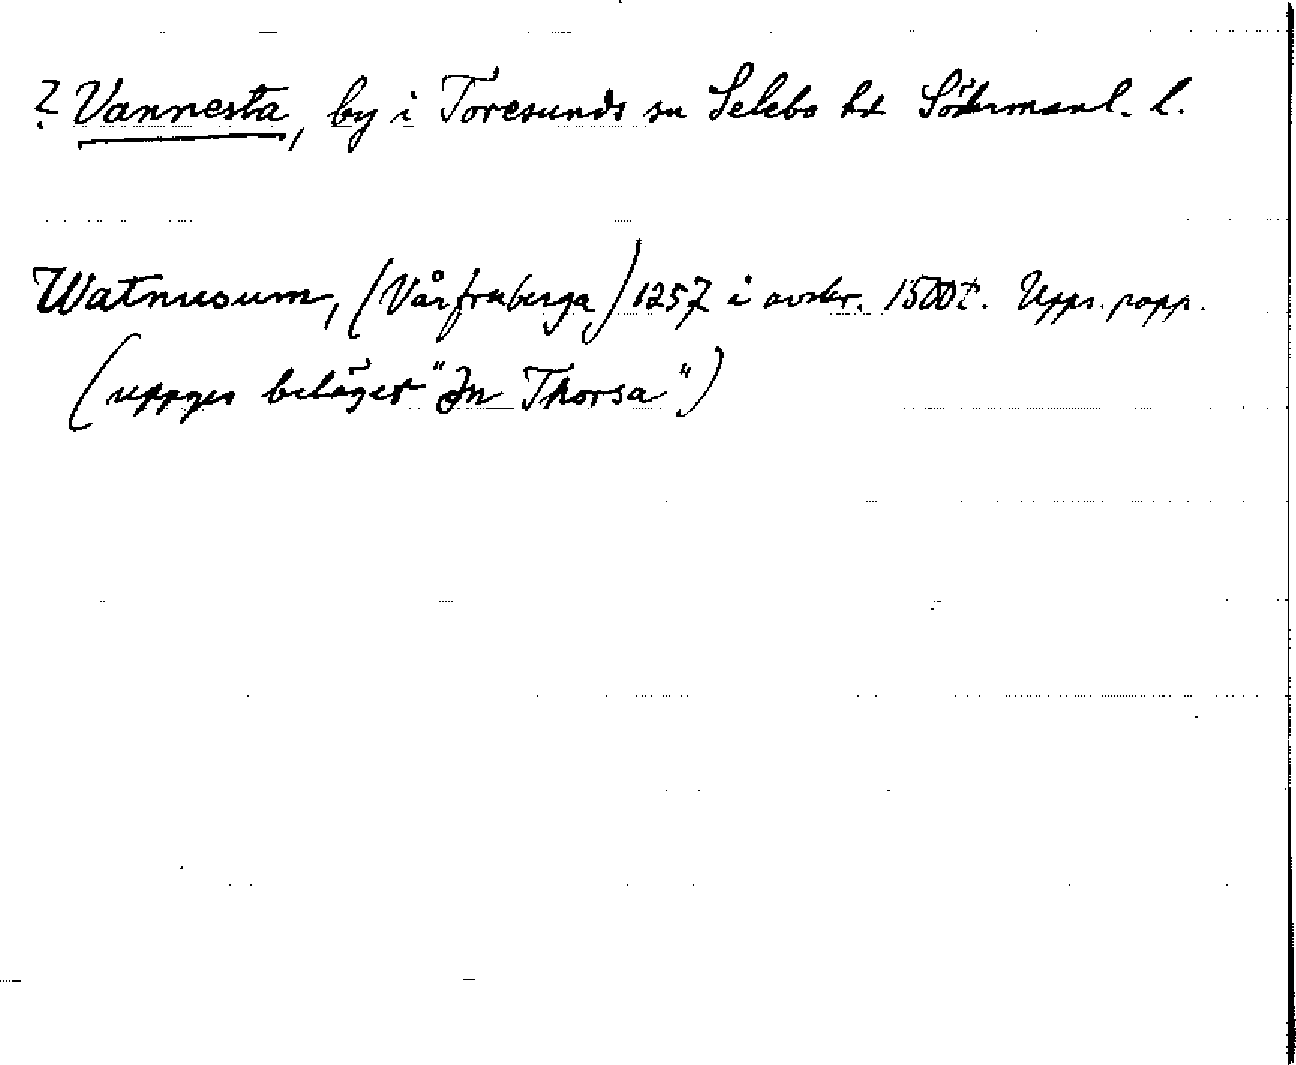 ? Vannesta, by i Toresunds sn Selebo hd Södermanl. l.
Watnusum, (Vårfruberga) 1257 i avskr. 1500 t. Upps. papp.
(uppges beläget "In Thorsa")